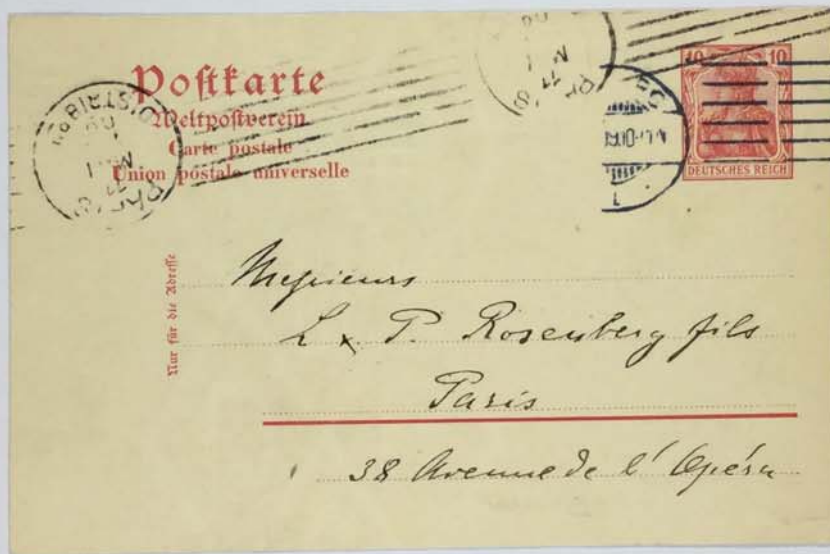 Postkarte
Weltpostverein
Carte postale
Union postale universelle
10 10
DEUTSCHES REICH
DISTRIBON
Nur für die Adresse
Messieurs
L & P. Rosenberg fils
Paris
38 Avenue de l'Opéra